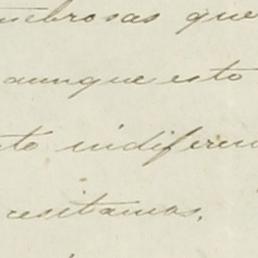 tenebrosas que
aunque esto
to indiferen
cesitamos,